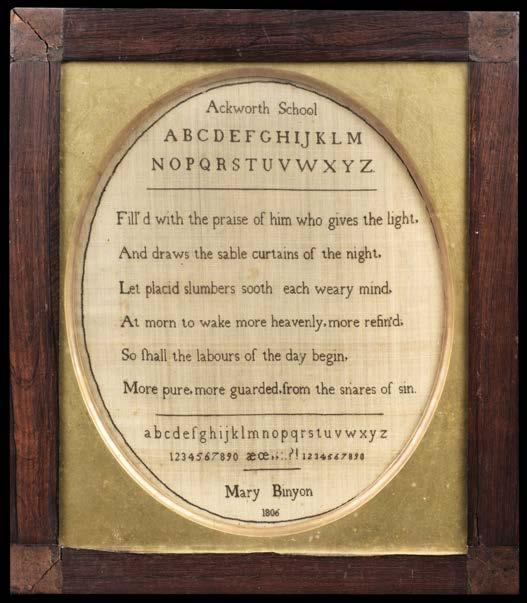 Ackworth School
ABCDEFGHIJKLM
NOPQRSTUVWXYZ.
Fill'd with the praise of him who gives the light,
And draws the sable curtains of the night,
Let placid slumbers sooth each weary mind,
At morn to wake more heavenly, more refin'd;
So ſhall the labours of the day begin,
More pure, more guarded, from the snares of sin.
abcdefghijklmnopqrstuvwxyz
1234567890 æœ,;:.?! 1234567890
Mary Binyon
1806